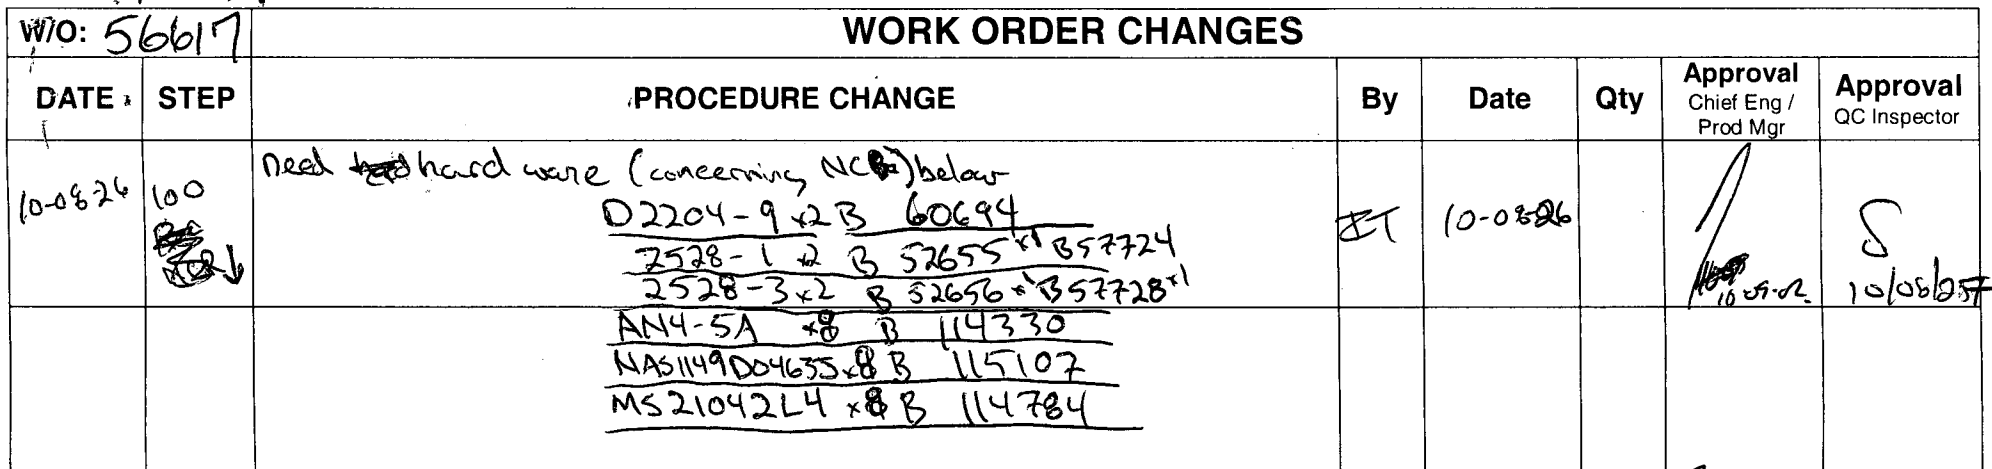 W/O: 56617 WORK ORDER CHANGES
DATE STEP PROCEDURE CHANGE By Date Qty Approval Chief Eng / Prod Mgr Approval QC Inspector
need hard ware (concerning NCR) below
10-08-26 100 D2204-9 x2 B 60694 10-08-26
2528-1 x2 B 52655 x1 B57724
2528-3 x2 B 52656 x1 B57728 x1 10-09-02 10/08/27
AN4-5A x8 B 114330
NAS1149D0463J x8 B 115107
MS21042L4 x8 B 114784